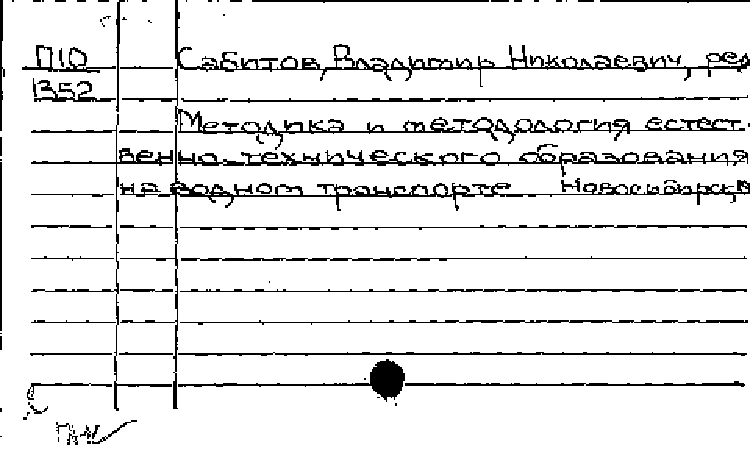 П10 Сабитов, Владимир Николаевич, ред
В52
Методика и методология естест-
венно-технического образования
на водном транспорте Новосибирск